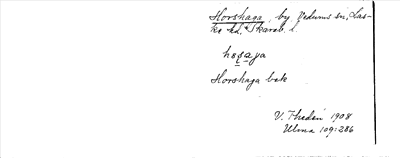 Horshaga, by Vedums sn, Las-
ke hd. Skarab. l.
Horshaga bak
V. Thedén 1908
Ulma 109:286